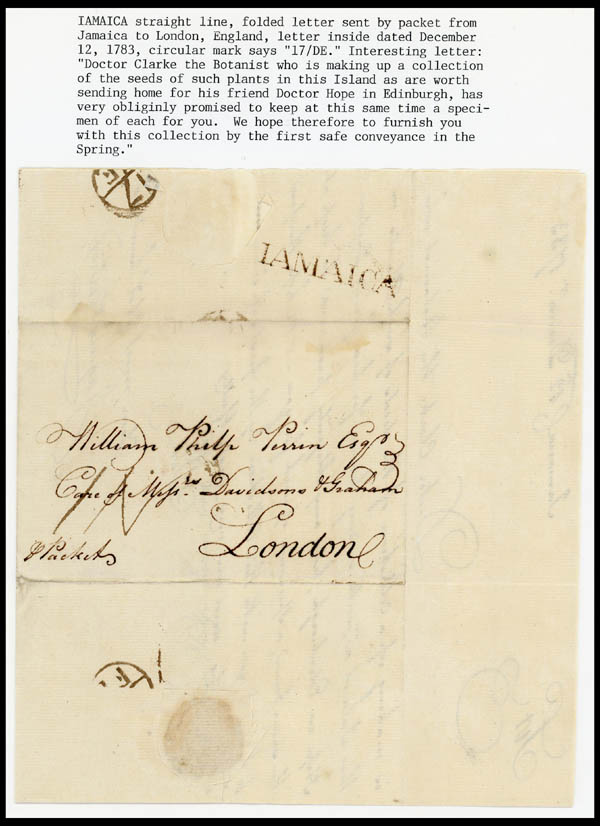 IAMAICA straight line, folded letter sent by packet from
Jamaica to London, England, letter inside dated December
12, 1783, circular mark says "17/DE." Interesting letter:
"Doctor Clarke the Botanist who is making up a collection
of the seeds of such plants in this Island as are worth
sending home for his friend Doctor Hope in Edinburgh, has
very obliginly promised to keep at this same time a speci-
men of each for you. We hope therefore to furnish you
with this collection by the first safe conveyance in the
Spring."
IAMAICA
William Philp Perrin Esqr
Care of Messrs Davidsons & Graham
London
Packet